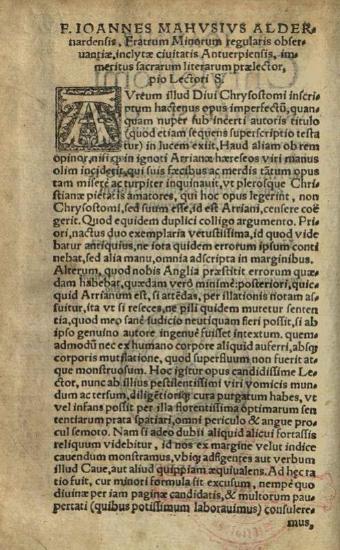 F. IOANNES MAHVSIVS ALDER-
nardensis, Fratrum Minorum regularis obser-
uantiæ, inclytæ ciuitatis Antuerpiensis, im-
meritus sacrarum literarum prælector,
pio Lectori S.
AVreum illud Diui Chrysostomi inscri-
ptum hactenus opus imperfectũ, quan-
quam nuper sub incerti autoris titulo
(quod etiam sequens superscriptio testa
tur) in lucem exijt, Haud aliam ob rem
opinor, nisi quòd in ignoti Arrianæ hæreseos viri manus
olim inciderit, qui suis fæcibus ac merdis tãtum opus
tam miserè ac turpiter inquinauit, vt plerosque Chri-
stianæ pietatis amatores, qui hoc opus legerint, non
Chrysostomi, sed suum esse, id est Arriani, censere coë
gerit. Quod equidem duplici colligo argumento. Pri-
ori, nactus duo exemplaria vetustissima, id quod vide
batur antiquius, ne iota quidem errorum ipsum conti
nebat, sed alia manu, omnia adscripta in marginibus.
Alterum, quod nobis Anglia præstitit errorum quæ-
dam habebat, quædam verò minimè: posteriori, quic-
quid Arrianum est, si attẽdas, per illationis notam as-
suitur, ita vt si reseces, ne pili quidem muretur senten-
tia, quod meo sanè iudicio neutiquam fieri possit, si ab
ipso genuino autore ingenuè fuisset intextum. quem-
admodũ nec ex humano corpore aliquid auferri, absq;
corporis mutilatione, quod superfluum non fuerit at-
que monstruosum. Hoc igitur opus candidissime Le-
ctor, nunc ab illius pestilentissimi viri vomicis mun-
dum ac tersum, diligẽtioriq; cura purgatum habes, vt
vel infans possit per illa florentissima optimarum sen-
tentiarum prata spatiari, omni periculo & angue pro-
cul semoto. Nam si adeo dubii aliquid alicui fortassis
reliquum videbitur, id nos ex margine velut indice
cauendum monstramus, vbiq; adfigentes aut verbum
illud Caue, aut aliud quippiam æquiualens. Ad hęc ta
tio fuit, cur minori formula sit excusum, nempe quo
diuinæ per iam paginæ candidatis, & multorum pau-
pertati (quibus potissimum laborauimus) consulere-
mus,